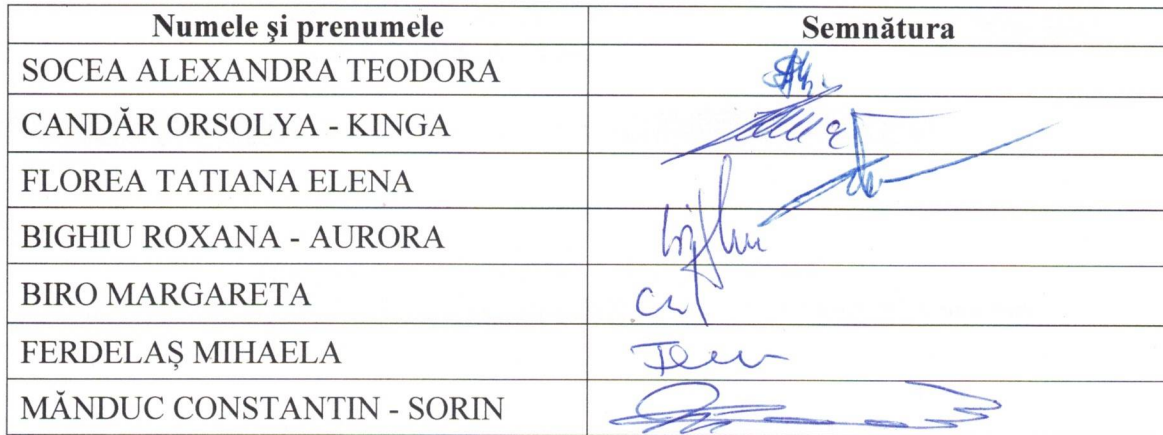 Numele şi prenumele Semnătura
SOCEA ALEXANDRA TEODORA
CANDĂR ORSOLYA - KINGA
FLOREA TATIANA ELENA
BIGHIU ROXANA - AURORA
BIRO MARGARETA
FERDELAȘ MIHAELA
MĂNDUC CONSTANTIN - SORIN